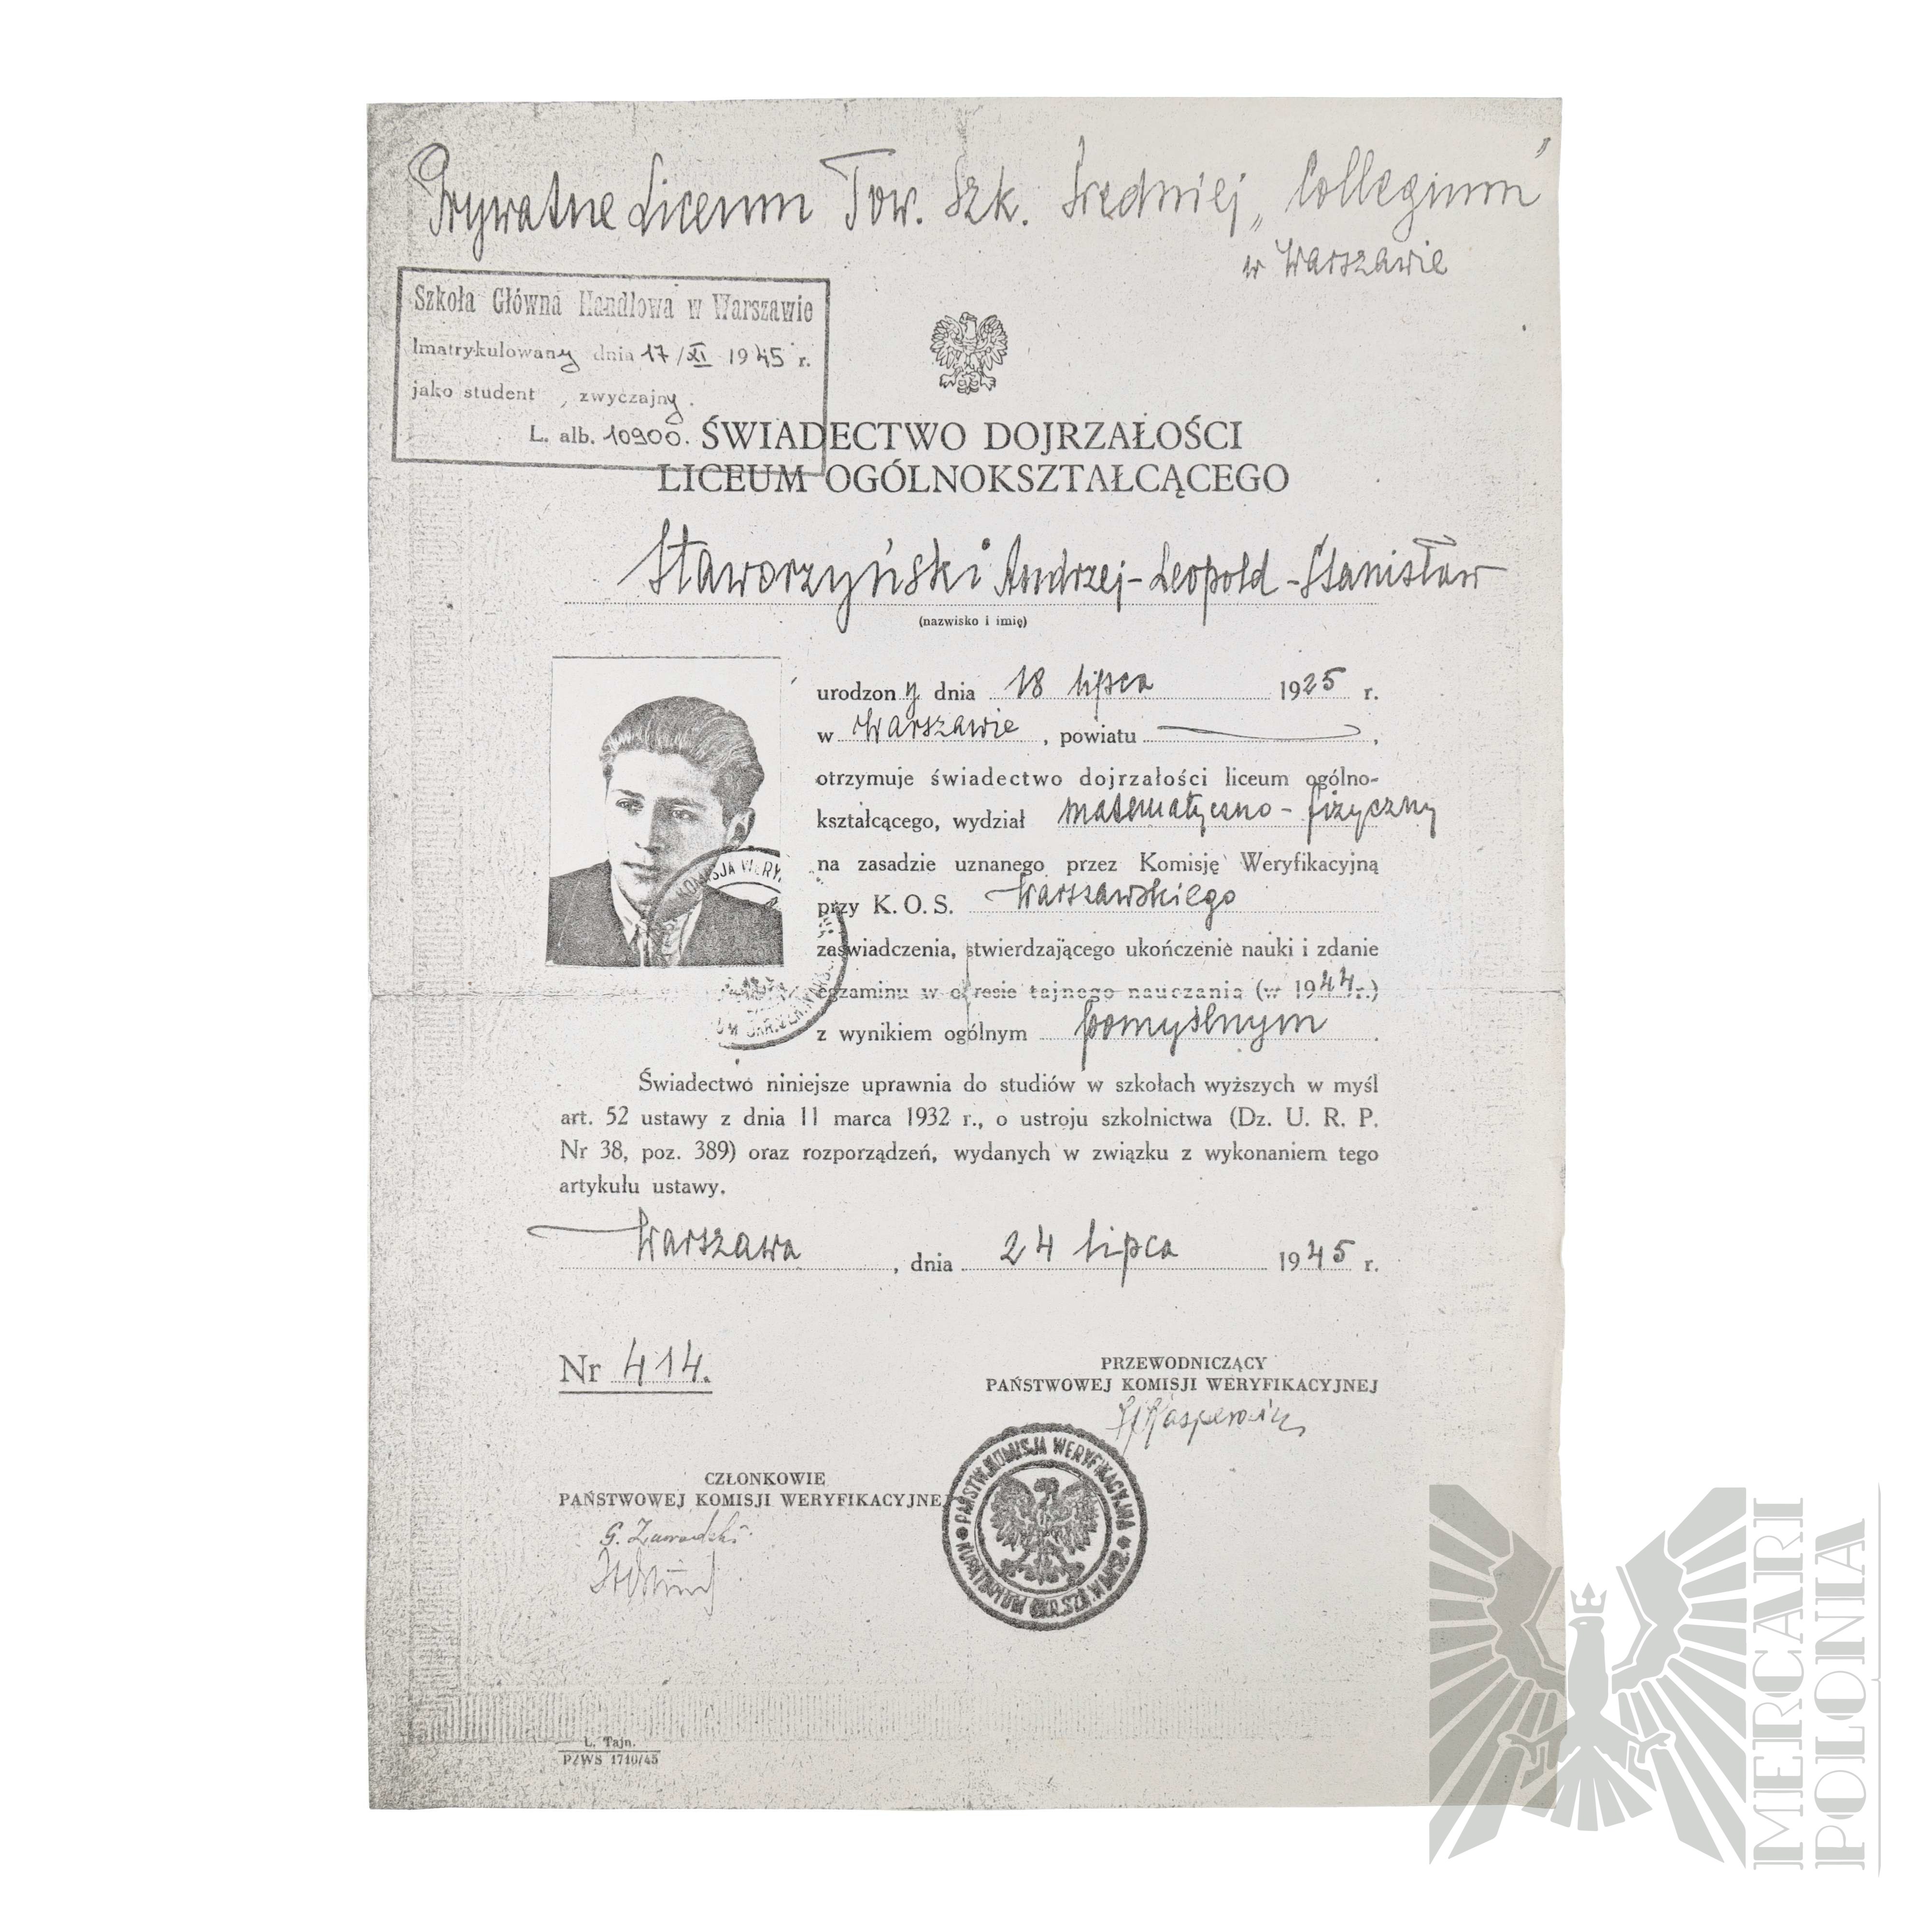 Prywatne Liceum Tow. Szk. Średniej „Collegium”
w Warszawie
Szkoła Główna Handlowa w Warszawie
Imatrykulowany dnia 17/XI 1945 r.
jako student, zwyczajny.
L. alb. 10900.
ŚWIADECTWO DOJRZAŁOŚCI
LICEUM OGÓLNOKSZTAŁCĄCEGO
Staworzyński Andrzej-Leopold-Stanisław
(nazwisko i imię)
urodzony dnia 18 lipca 1925 r.
w Warszawie, powiatu —,
otrzymuje świadectwo dojrzałości liceum ogólno-
kształcącego, wydział matematyczno-fizyczny
na zasadzie uznanego przez Komisję Weryfikacyjną
przy K. O. S. Warszawskiego
zaświadczenia, stwierdzającego ukończenie nauki i zdanie
egzaminu w okresie tajnego nauczania (w 1944 r.)
z wynikiem ogólnym pomyślnym.
Świadectwo niniejsze uprawnia do studiów w szkołach wyższych w myśl
art. 52 ustawy z dnia 11 marca 1932 r., o ustroju szkolnictwa (Dz. U. R. P.
Nr 38, poz. 389) oraz rozporządzeń, wydanych w związku z wykonaniem tego
artykułu ustawy.
Warszawa, dnia 24 lipca 1945 r.
Nr 414.
PRZEWODNICZĄCY
PAŃSTWOWEJ KOMISJI WERYFIKACYJNEJ
CZŁONKOWIE
PAŃSTWOWEJ KOMISJI WERYFIKACYJNEJ
G. Zawadzki
PAŃSTW. KOMISJA WERYFIKACYJNA
KURATORIUM OKR. SZK. WARSZ.
L. Tajn.
PZWS 1710/45
MERCARI
POLONIA